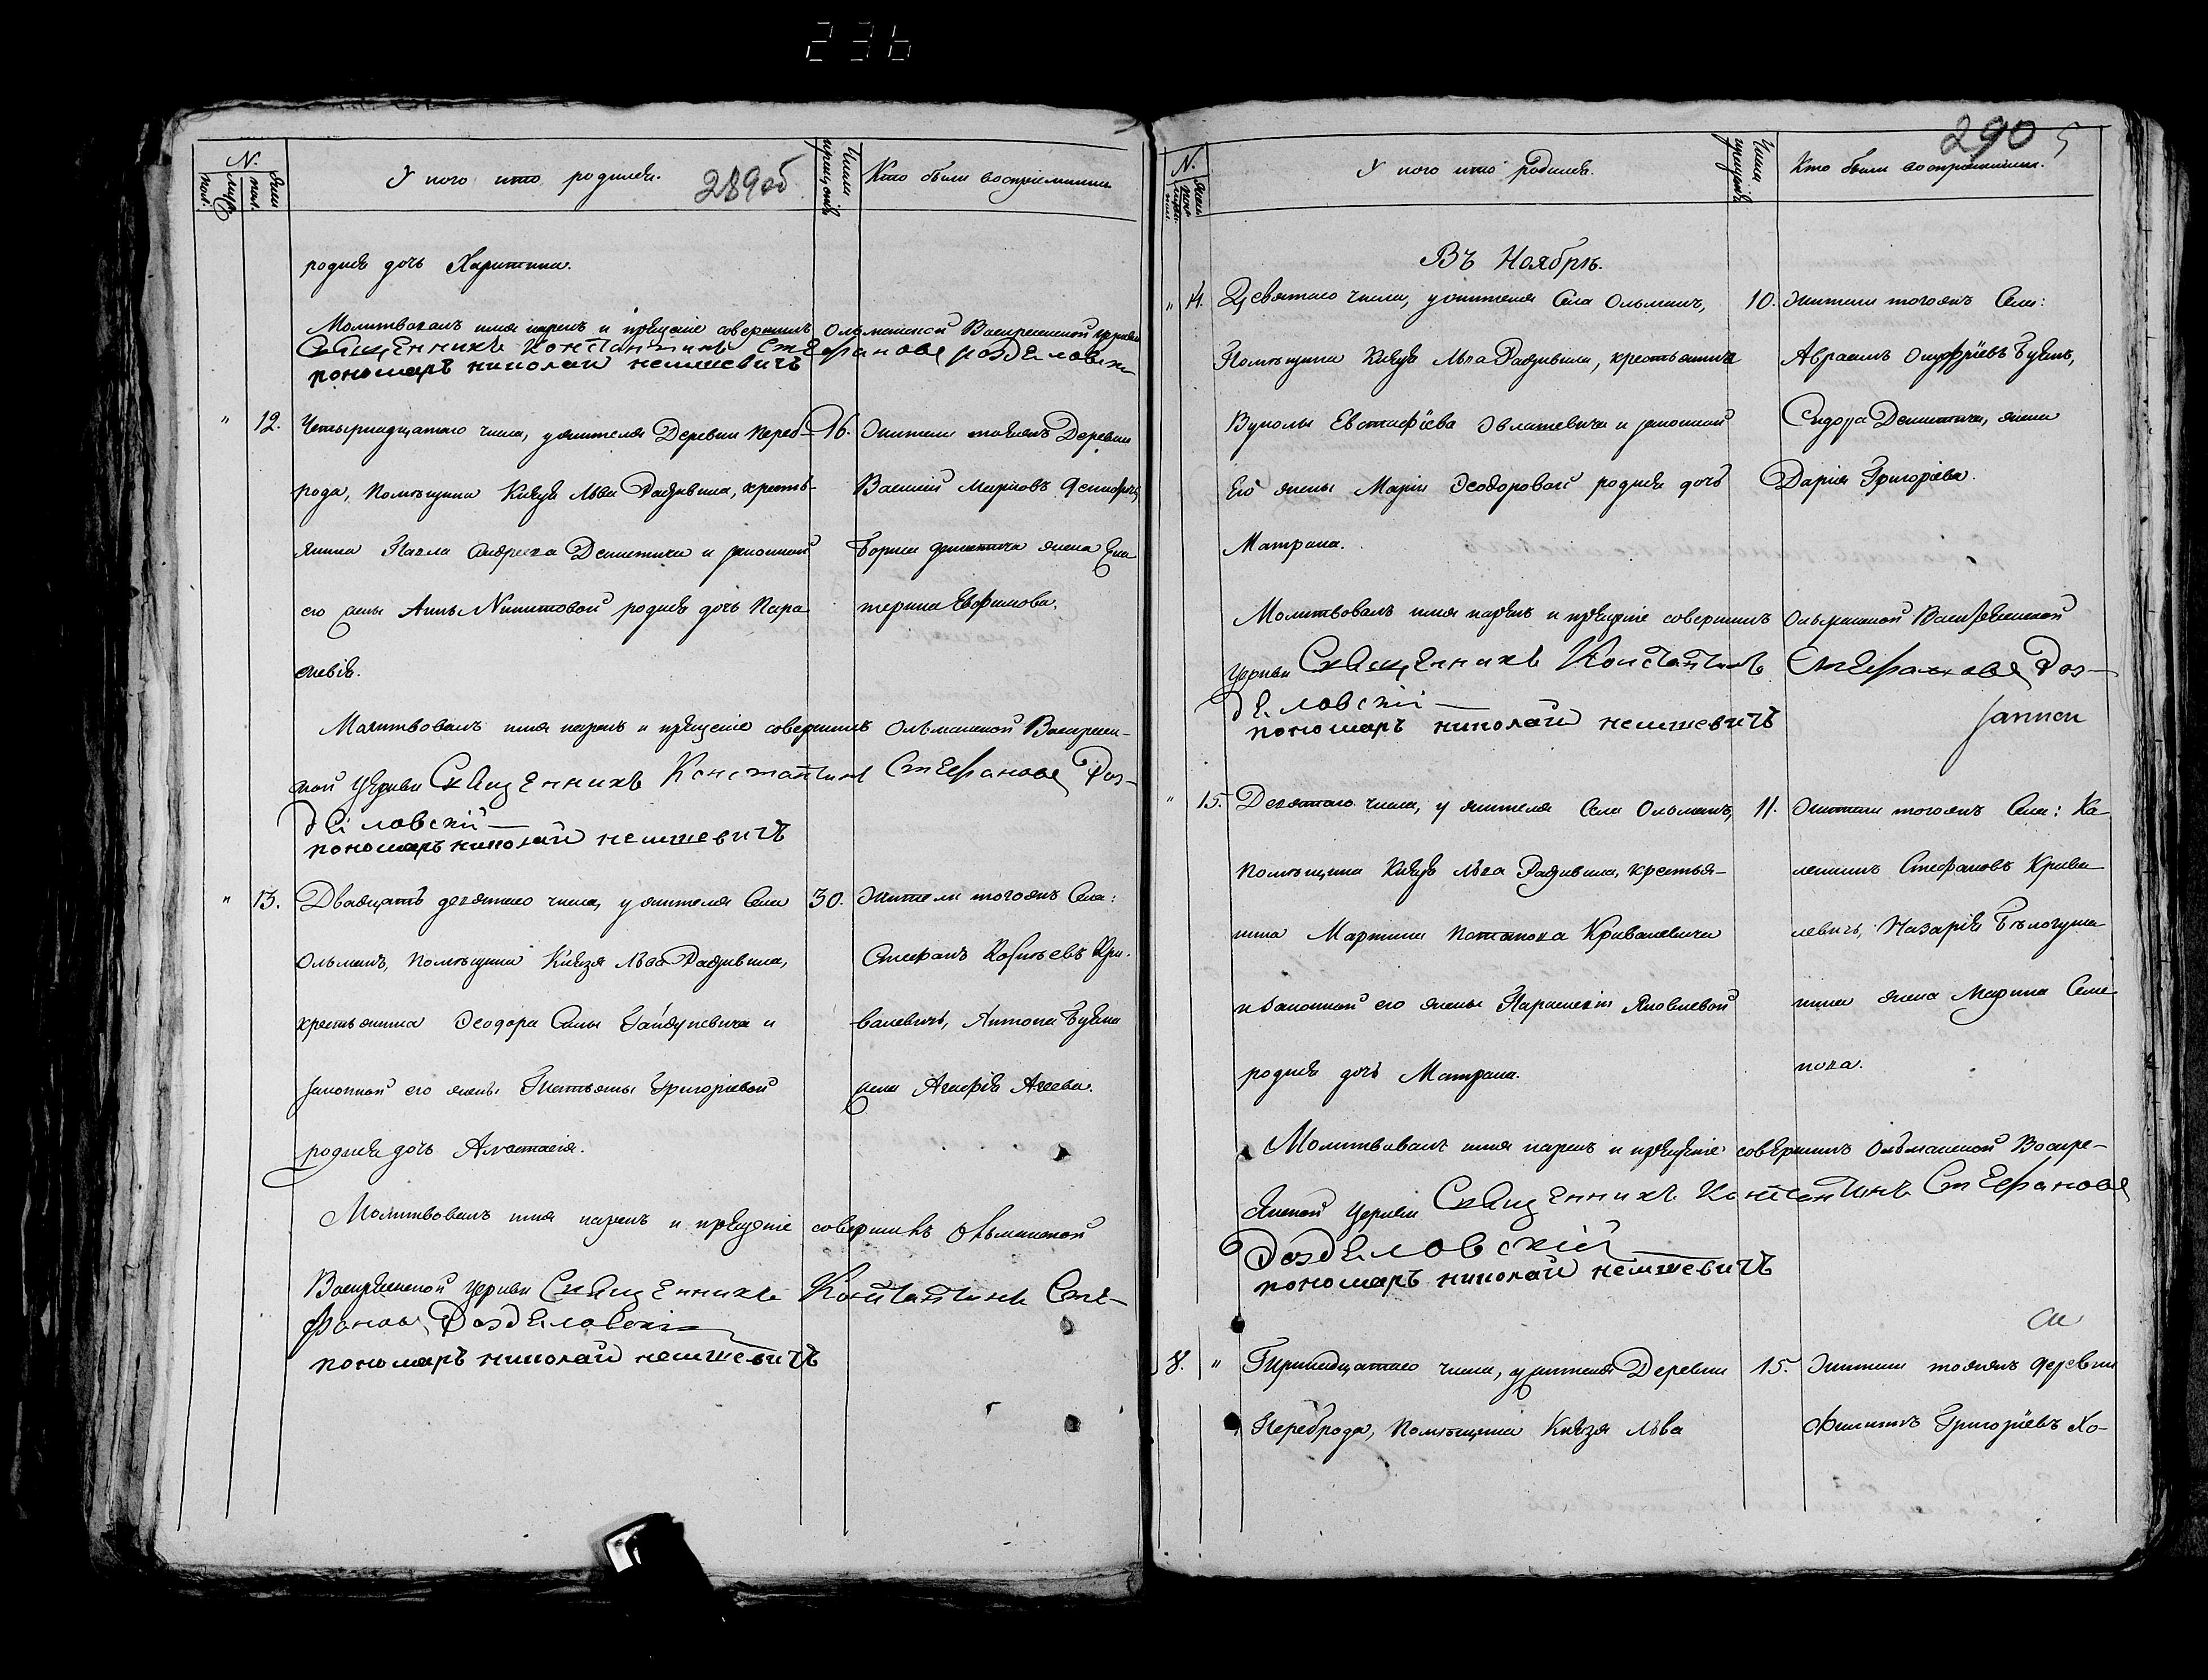 236
N.
Муж. пол.
Жен. пол.
У кого кто родился.
289об
Числа крещенія
Кто были воспріемники
родися дочь Харитина.
Молитвовалъ имя нарекъ и крещеніе совершилъ Ольманской Воскресенской церкви
Священникъ Константинъ Стефановъ Роздяловскій
пономаръ николай немшевичъ
" 12. Четырнадцатаго числа, у жителя Деревни Переб-
рода, Помѣщика Князя Льва Радзивила, кресть-
янина Павла Андреева Деметчи и законной
его жены Анны Никитовой родися дочь Пара-
скевія.
16. Жители тоежъ Деревни
Василій Марковъ
Бориса жена Ека-
терина Евфимова.
Молитвовалъ имя нарекъ и крещеніе совершилъ Ольманской Воскресен-
ской Церкви Священникъ Константинъ Стефановъ Роз-
дяловскій
пономаръ николай немшевичъ
" 13. Двадцать девятаго числа, у жителя Села
Ольманъ, Помѣщика Князя Льва Радзивила,
крестьянина Ѳеодора Савы Гайдукевича и
законной его жены Татьяны Григоріевой
родися дочь Анастасія.
30. Жители тогожъ Села:
Стефанъ Кри-
валевичъ, Антона Бушка
жена Агафія
Молитвовалъ имя нарекъ и крещеніе совершилъ Ольманской
Воскресенской Церкви Священникъ Константинъ Сте-
фановъ Роздяловскій
пономаръ николай немшевичъ
290
N.
У кого кто родился.
Числа крещенія
Кто были воспріемники.
Въ Ноябрѣ.
" 14. Девятаго числа, у жителя Села Ольманъ,
Помѣщика Князя Льва Радзивила, крестьянина
Вуколы Евстафіева и законной
Его жены Маріи Ѳеодоровой родися дочь
Матрона.
10. Жители тогожъ Села:
Авраамъ Онуфріевъ
Сидора жена
Дарія Григоріева.
Молитвовалъ имя нарекъ и крещеніе совершилъ Ольманской Воскресенской
Церкви Священникъ Константинъ Стефановъ Роз-
дяловскій
пономаръ николай немшевичъ
" 15. Десятаго числа, у жителя Села Ольманъ,
Помѣщика Князя Льва Радзивила, крестья-
нина Мартина Потапова Кривалевича
и Законной его жены Параскевіи Яковлевой
родися дочь Матрона.
11. Жители тогожъ Села: Ка-
Стефановъ Крива-
левичъ, Назарія
жена Марина Семе-
нова.
Молитвовалъ имя нарекъ и крещеніе совершилъ Ольманской Воскре-
сенской Церкви Священникъ Константинъ Стефановъ
Роздяловскій
пономаръ николай немшевичъ
8. " Тринадцатаго числа, у жителя Деревни
Переброда, Помѣщика Князя Льва
15. Жители тоежъ деревни
Филиппъ Григоріевъ Хо-